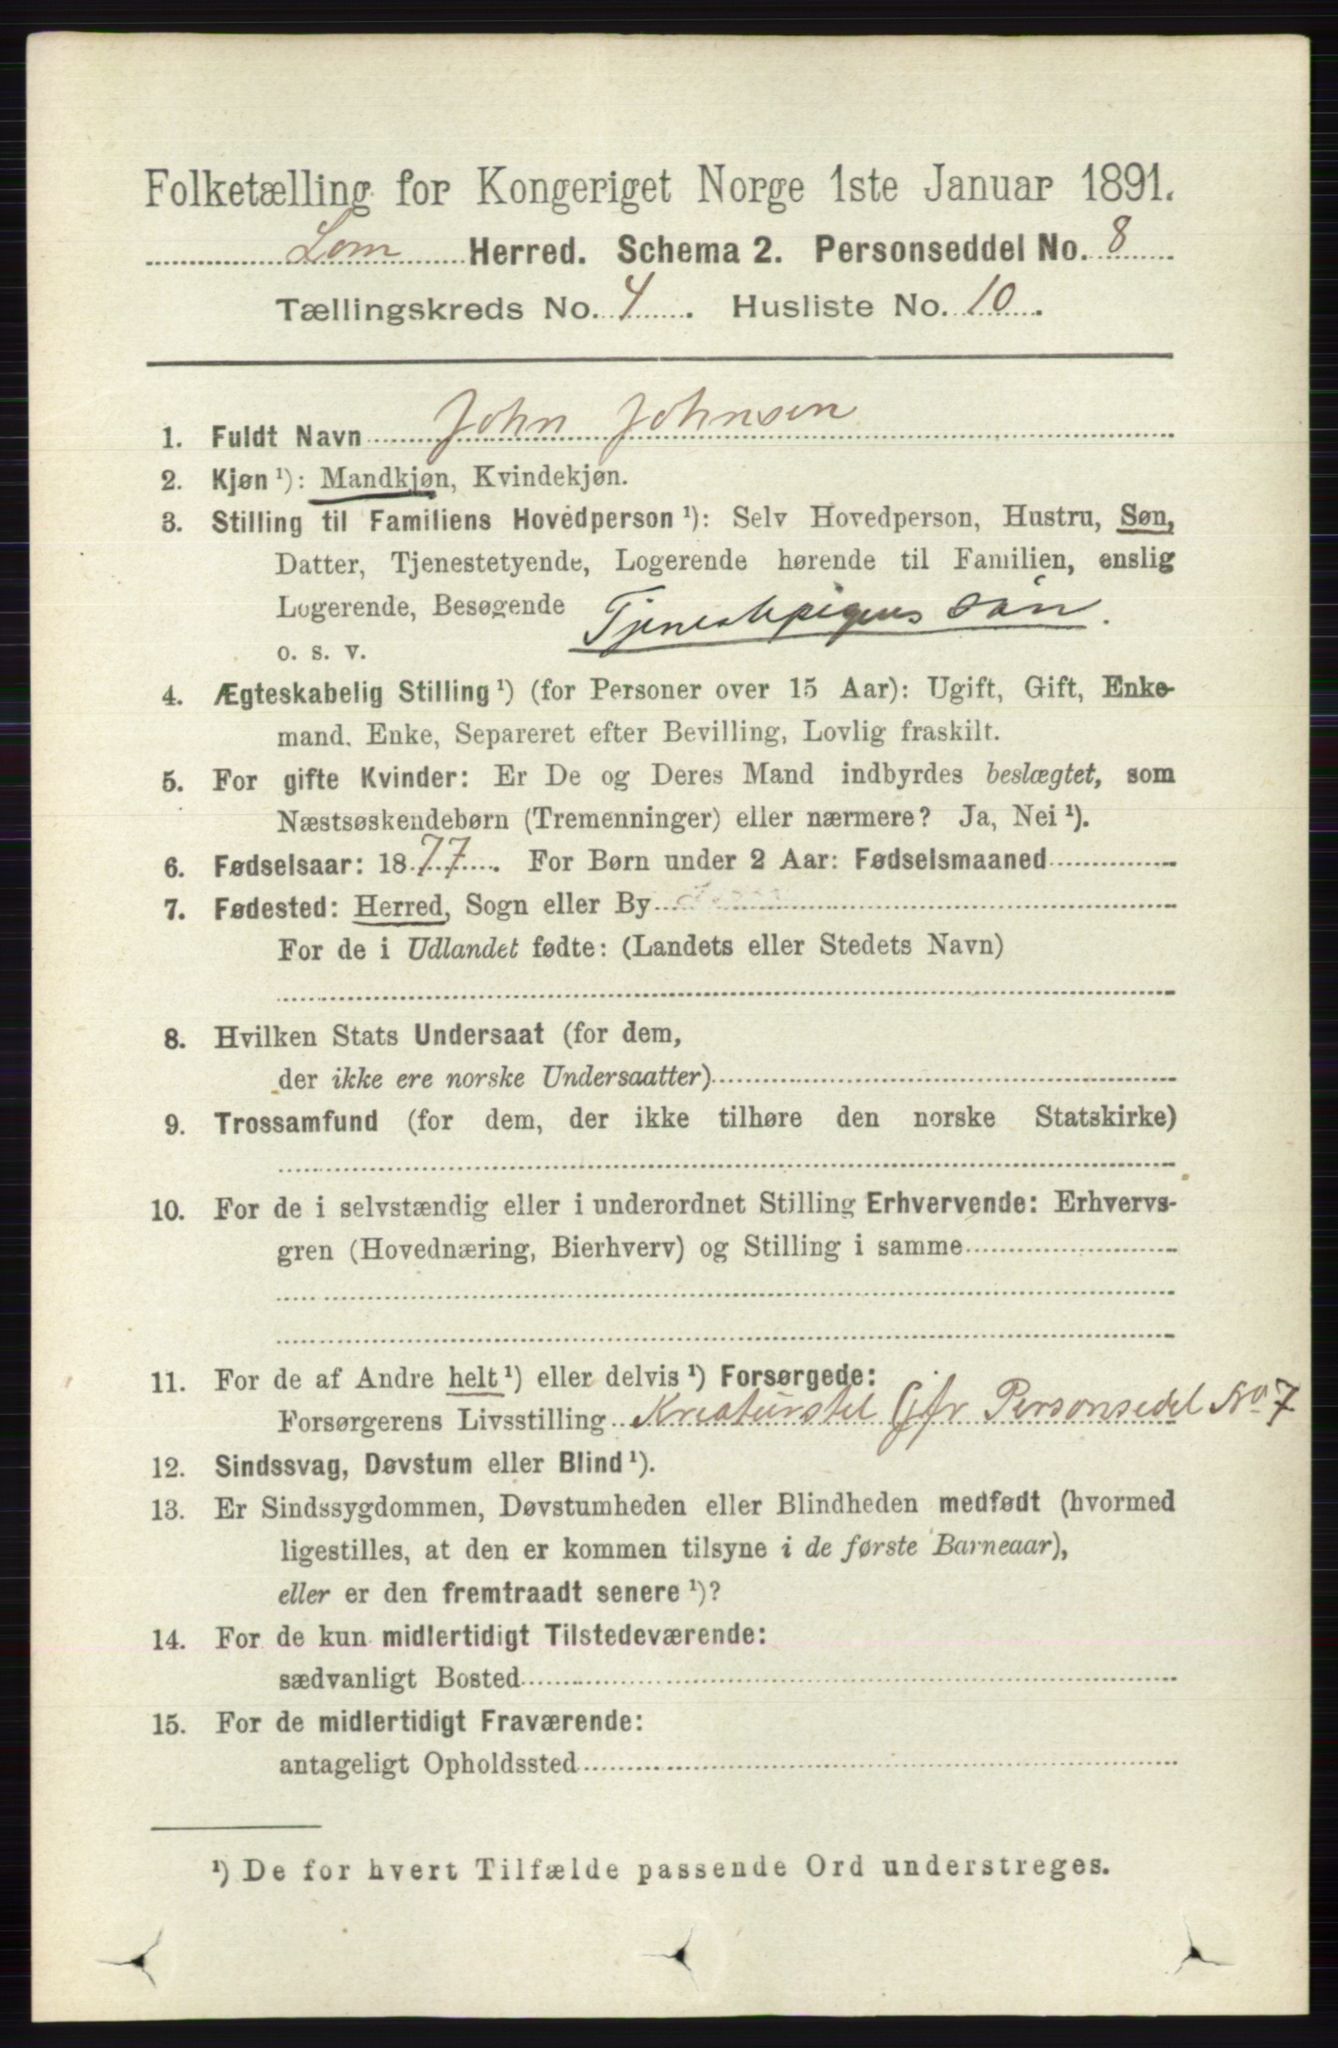 Folketælling for Kongeriget Norge 1ste Januar 1891.
Lom Herred. Schema 2. Personseddel No. 8
Tællingskreds No. 4. Husliste No. 10.
1. Fuldt Navn John Johnsen
2. Kjøn ¹): Mandkjøn, Kvindekjøn.
3. Stilling til Familiens Hovedperson ¹): Selv Hovedperson, Hustru, Søn,
Datter, Tjenestetyende, Logerende hørende til Familien, enslig
Logerende, Besøgende Tjenestepigens søn.
o. s. v.
4. Ægteskabelig Stilling ¹) (for Personer over 15 Aar): Ugift, Gift, Enke-
mand, Enke, Separeret efter Bevilling, Lovlig fraskilt.
5. For gifte Kvinder: Er De og Deres Mand indbyrdes beslægtet, som
Næstsøskendebørn (Tremenninger) eller nærmere? Ja, Nei ¹).
6. Fødselsaar: 1877. For Børn under 2 Aar: Fødselsmaaned
7. Fødested: Herred, Sogn eller By
For de i Udlandet fødte: (Landets eller Stedets Navn)
8. Hvilken Stats Undersaat (for dem,
der ikke ere norske Undersaatter)
9. Trossamfund (for dem, der ikke tilhøre den norske Statskirke)
10. For de i selvstændig eller i underordnet Stilling Erhvervende: Erhvervs-
gren (Hovednæring, Bierhverv) og Stilling i samme
11. For de af Andre helt ¹) eller delvis ¹) Forsørgede:
Forsørgerens Livsstilling Kreaturstel Cfr Personsedel No 7
12. Sindssvag, Døvstum eller Blind ¹).
13. Er Sindssygdommen, Døvstumheden eller Blindheden medfødt (hvormed
ligestilles, at den er kommen tilsyne i de første Barneaar),
eller er den fremtraadt senere ¹)?
14. For de kun midlertidigt Tilstedeværende:
sædvanligt Bosted
15. For de midlertidigt Fraværende:
antageligt Opholdssted
¹) De for hvert Tilfælde passende Ord understreges.